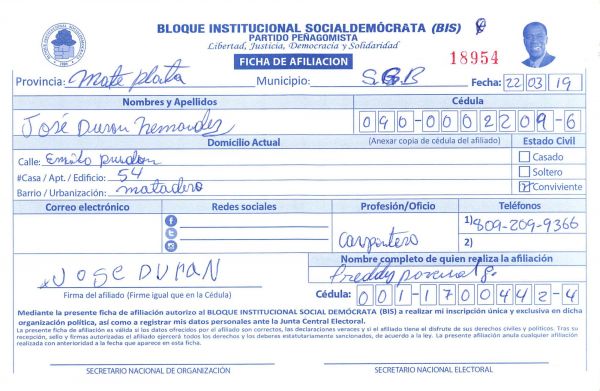 BLOQUE INSTITUCIONAL SOCIALDEMÓCRATA (BIS)
PARTIDO PEÑAGOMISTA
Libertad, Justicia, Democracia y Solidaridad
FICHA DE AFILIACION
18954
Provincia: Monte Plata Municipio: S.G.B Fecha: 22 03 19
Nombres y Apellidos Cédula
José Duran Hernandez 090-0002209-6
Domicilio Actual (Anexar copia de cédula del afiliado) Estado Civil
Calle: Emilio Casado
#Casa / Apt. / Edificio: 54 Soltero
Barrio / Urbanización: matadero Conviviente
Correo electrónico Redes sociales Profesión/Oficio Teléfonos
1) 809-209-9366
Carpintero 2)
Nombre completo de quien realiza la afiliación
x JOSE DURAN Freddy
Firma del afiliado (Firme igual que en la Cédula) Cédula: 001-1700442-4
Mediante la presente ficha de afiliación autorizo al BLOQUE INSTITUCIONAL SOCIAL DEMÓCRATA (BIS) a realizar mi inscripción única y exclusiva en dicha
organización política, así como a registrar mis datos personales ante la Junta Central Electoral.
La presente ficha de afiliación es válida si los datos ofrecidos por el afiliado son correctos, las declaraciones veraces y si el afiliado tiene el disfrute de sus derechos civiles y políticos. Tras su
recepción, sello y firmas autorizadas el afiliado ejercerá todos los derechos y los deberes estatutariamente sancionados, de acuerdo a la ley. La presente afiliación anula cualquier afiliación
realizada con anterioridad a la fecha que aparece en esta ficha.
SECRETARIO NACIONAL DE ORGANIZACIÓN SECRETARIO NACIONAL ELECTORAL